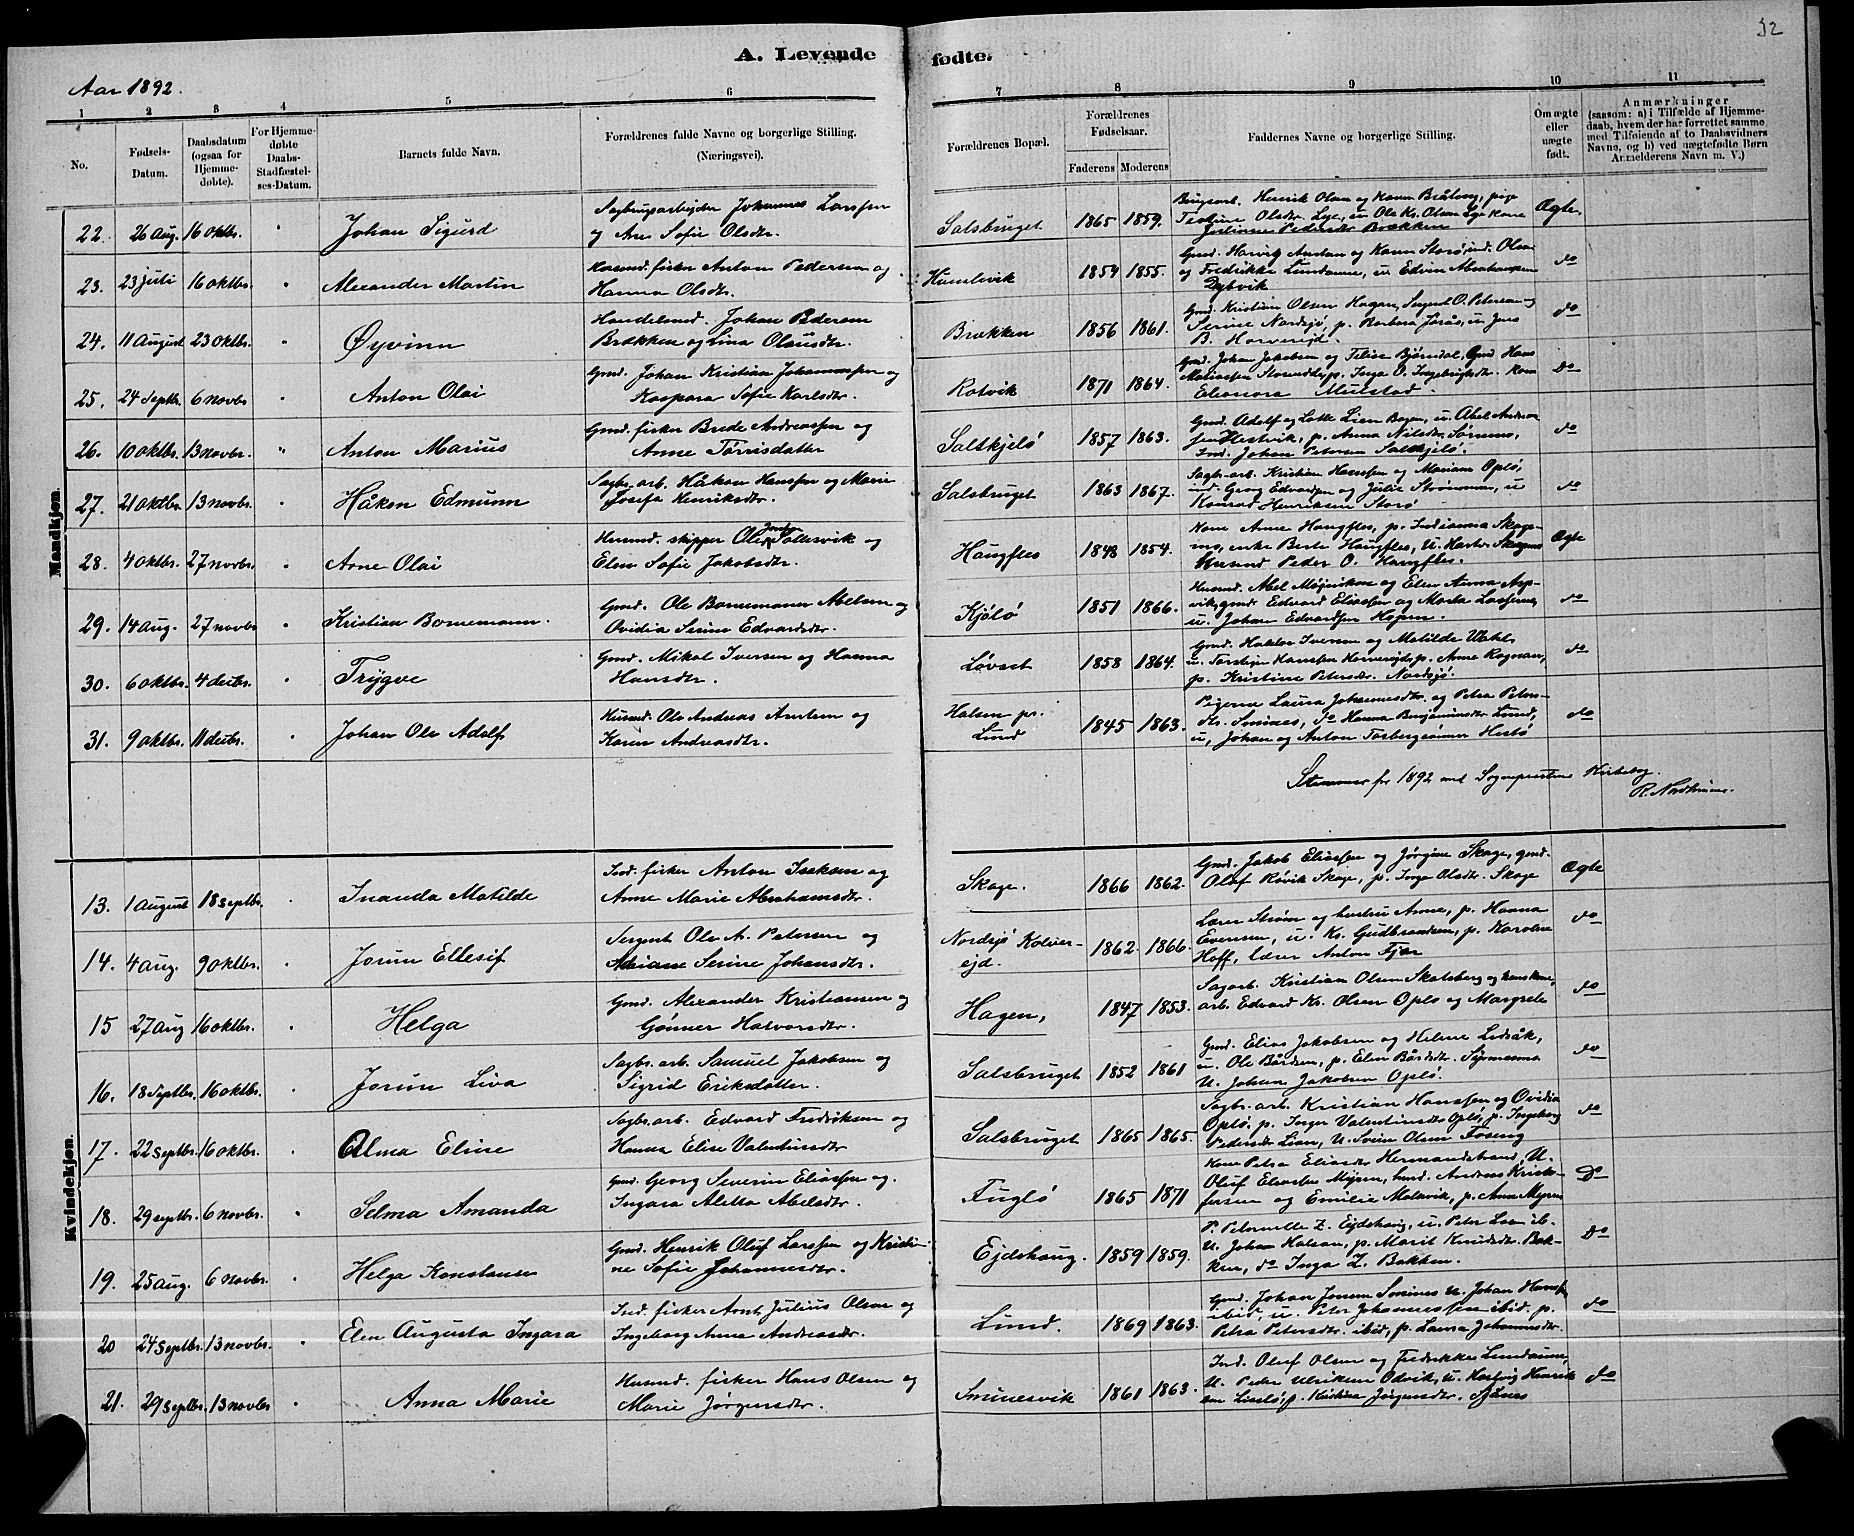 52
A. Levende fødte.
Aar 1892.
1 2 3 4 5 6 7 8 9 10 11
No.
Fødsels-
Datum.
Daabsdatum
(ogsaa for
Hjemme-
døbte).
For Hjemme-
døbte
Daabs-
Stadfæstel-
ses-Datum.
Barnets fulde Navn.
Forældrenes fulde Navne og borgerlige Stilling.
(Næringsvei).
Forældrenes Bopæl.
Forældrenes
Fødselsaar.
Faderens Moderens
Faddernes Navne og borgerlige Stilling.
Om ægte
eller
uægte
født.
Anmærkninger
(saasom: a) i Tilfælde af Hjemme-
daab, hvem der har forrettet samme
med Tilføiende af to Daabsvidners
Navne, og b) ved uægtefødte Børn
Anmelderens Navn m. V.)
Mandkjøn.
22. 26 Aug. 16 oktbr. " Johan Sigurd
Sagbrugsarbejder Johannes Larssen
og Ane Sofie Olsdtr.
Salsbruget 1865 1859.
Brugsarb. Henrik Olsen og Karen Bråten, pige
Olsdtr. Lge, u. Ole Kr. Olsen Lge Kone
Juliane Pedersdtr Brækken
Ægte
23. 23 juli 16 oktbr. " Alexander Martin
Husmd. fisker Anton Pedersen og
Hanna Olsdtr.
Hamlevik 1854 1855.
og Fredrikke Lundanne, u. Edvin Abrahamsen
Dybvik
do
24. 11 August 23 oktbr. " Øyvinn
Handelsmd. Johan Pedersen
Brækken og Lina Olausdtr.
Brækken 1856 1861.
Gmd. Kristian Olsen Hagen, Sergent O. Petersen og
Serine Nordsjø, p. Barbara Forås, u. Jens
B. Horverejd.
do
25. 24 Septbr. 6 novbr " Anton Olai
Gmd. Johan Kristian Johannessen og
Kaspara Sofie Karlsdtr.
Rotvik 1871 1864.
Gmd. Johan Jakobsen og Bjørndal, Gmd Hans
p. Inga O. Ingebrigtsdtr. Kone
Eleonora Mulstad
Do
26. 10 oktbr. 13 novbr. " Anton Marius
Gmd. fisker Brede Andreassen og
Anne Tørrisdatter
Salskjelø 1857 1863.
Gmd. Adolf og Lotte Lien Bogen, u. Abel Andreas
sen Hestvik, p. Anna Nilsdtr. Sørnnes,
Ind. Johan Petersen Salskjelø.
do
27. 21 oktbr. 13 novbr. " Håkon Edmunn
Sagbr. arb. Håkon Hanssen og Marie
Josefa Henriksdtr.
Salsbruget 1863 1867.
Sagbr. arb. Kristian Hanssen og Mariane Opلø,
Georg Edvardsen og Julie Strømmen, u
Konrad Henriksen Storø
do
28. 4 oktbr. 27 novbr. " Arne Olai
Husmd. skipper Ole Solesvik og
Elen Sofie Jakobsdtr.
Haugfles 1848 1854.
Kone Anne Haugfles, p. Indianna Skage-
mo, enke Berte Haugfles, U. Skagemo
Husmd Peder O. Haugfles.
Ægte
29. 14 aug. 27 novbr " Kristian Bornemann.
Gmd. Ole Bornemann Abelsen og
Ovidia Serine Edvardsdtr.
Kjølø 1851 1866.
Husmd. Abel og Elen Anna Asp-
vik, gmd. Edvard Eliassen og Marta
u. Johan Edvardsen Hopen.
do
30. 6 oktbr. 4 decbr. " Trygve
Gmd. Mikal Iversen og Hanna
Hansdtr.
Løvset 1858 1864.
Gmd. Iversen og Matilde
u. Torstejn Hanssen p. Anne Rognan,
p. Kristine Petersdtr. Nordsjø.
do
31. 9 oktbr. 11 decbr. " Johan Ole Adolf
Husmd. Ole Andreas Arntsen og
Karen Andreasdtr.
Halsen pr.
Lund
1845 1863.
Pigerne Laura Johannesdtr. og Petra Peters-
dtr. Sminnes, do Hanna Benjaminsdtr Lund,
u, Johan og Anton Torbergsønner Hestø
do
Stemmer for 1892 med Sognepræstens Kirkebog.
Kvindekjøn.
13. 1 August 18 septbr. " Inanda Matilde
Ind. fisker Anton Isaksen og
Anne Marie Abrahamsdtr.
Skage. 1866 1862.
Gmd. Jakob Eliassen og Jørgine Skage, gmd.
Olaf Røvik Skage, p. Inga Olsdtr. Skage
Ægte
14. 4 aug. 9 oktbr. " Jorun Ellesif
Sergent Ole A. Petersen og
Adriane Serine Johansdtr.
Nordsjø Kolver-
ejd.
1862. 1866.
Lærer Strøm og hustru Anne, p. Hanna
Evensen, u. Kr. Gudbrandsen, p. Karoline
Hoff, lærer Anton Fjær
do
15 27 Aug 16 oktbr. " Helga
Gmd. Alexander Kristiansen og
Gønner Halvorsdtr.
Hagen, 1847 1853.
Sagarb. Kristian Olsen Skatsberg og hans kone,
arb. Edvard Kr. Olsen Oplo og Margrete
do
16. 18 Septbr. 16 oktbr. " Jorun Liva
Sagbr. arb. Samuel Jakobsen og
Sigrid Eriksdatter.
Salsbruget 1852 1861
Gmd. Elias Jakobsen og Helene Lidsåk,
u. Ole Bårdsen, p. Elen Bårdsdtr.
U. Johan Jakobsen Oplø.
do
17. 22 septbr. 16 oktbr. " Alma Eline
Sagbr. arb. Edvard Fredriksen og
Hanna Elise Valentinsdtr
Salsbruget 1865 1865.
Sagbr. arb. Kristian Hanssen og Ovidia
Oplø, p. Inger Valentinsdtr Oplø, p. Ingeborg
Pedersdtr Lian, U. Svein Olsen Foseng
do
18. 29 septbr. 6 novbr. " Selma Amanda
Gmd. Georg Severin Eliassen og
Ingara Aletta Abelsdtr.
Fuglø 1865 1871
Kone Petra Eliasdtr Hermandstrand, U.
Oluf Eliassen Myren, Andreas Kristo-
fersen og Emilie Malevik, p. Anna Myren
Do
19. 25 aug. 6 novbr. " Helga Konstanse
Gmd. Henrik Oluf Larssen og Kristi-
ne Sofie Johannesdtr.
Ejdshaug. 1859 1859.
P. Petornelle Z. Ejdshaug, u. Peter Laen ib.
U. Johan Halsan, p. Marit Knudsdtr. Bak-
ken, do Inga Z. Bakken.
Do
20 24 septbr. 13 novbr. " Elen Augusta Ingara
Ind. fisker Arnt Julius Olsen og
Ingeborg Anna Andreasdtr.
Lund. 1869 1863.
Gmd. Johan Jensen Sminnes u. Johan Hans
ibid, u. Peter Johannessen ibid. p.
Petra Petersdtr. ibid, p. Laura Johannesdtr.
do
21. 29 septbr. 13 novbr " Anna Marie
Husmd. fisker Hans Olsen og
Marie Jørgensdtr.
Sminesvik 1861 1863.
Ind. Oluf Olsen og Fredrikke Lundanne,
U. Peder Ulriksen Odvik, u. Hartvig Henrik
sen p. Kristina Jørgensdtr. Sjånes
do